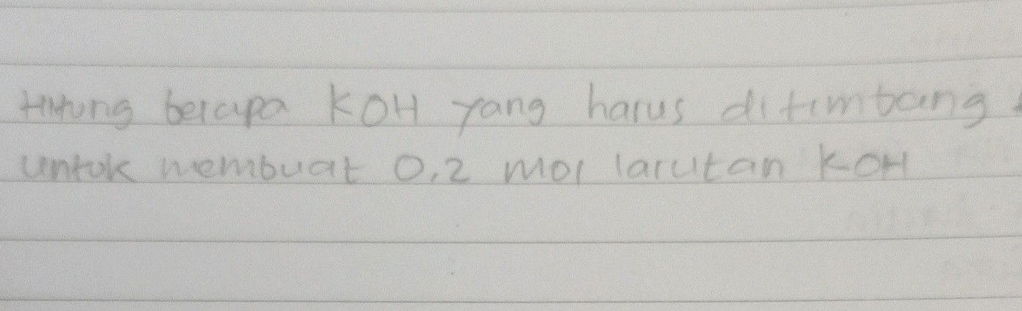 Hitung berapa KOH yang harus ditimbang
untuk membuat 0,2 mol larutan KOH